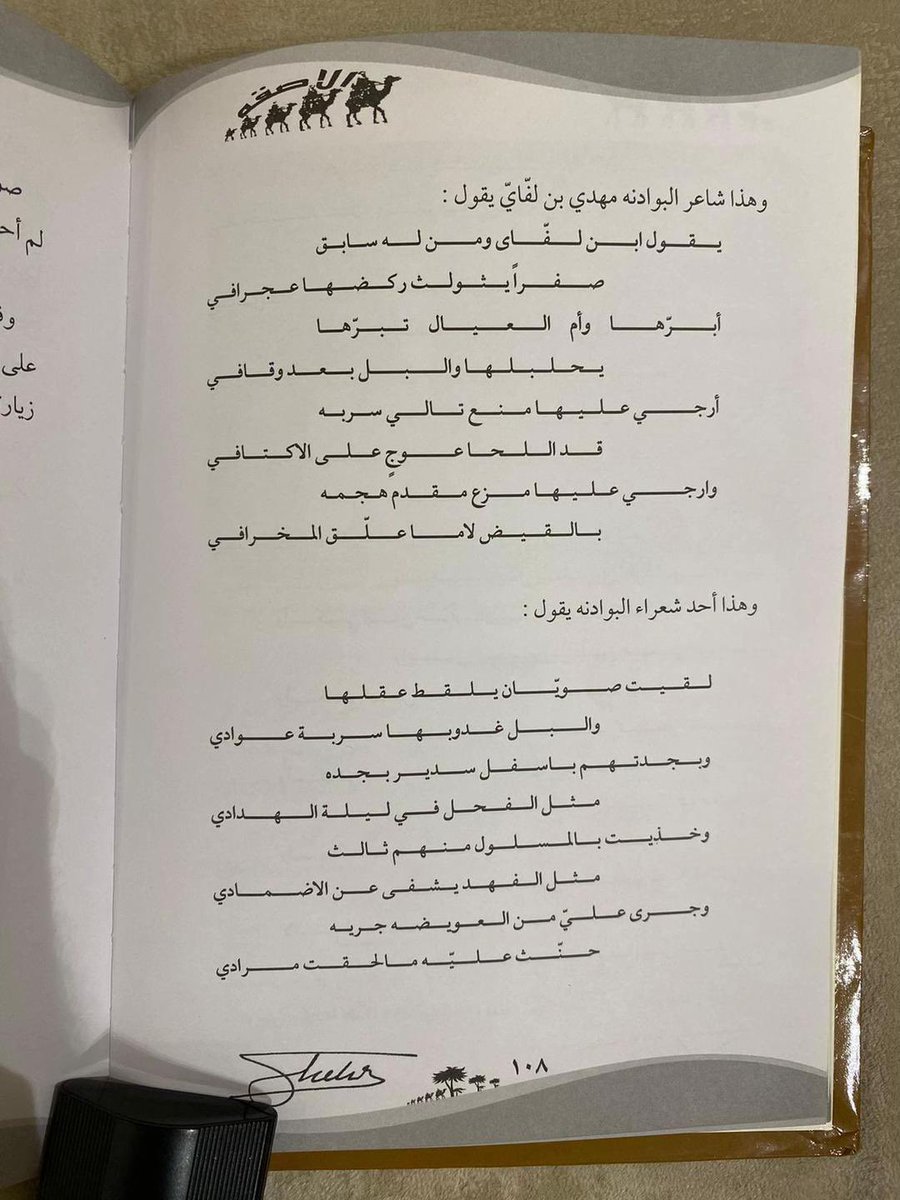 الأصقه
وهذا شاعر البوادنه مهدي بن لفّايّ يقول :
يقول ابن لفّاى ومن له سابق
صفراً يثولث ركضها عجرافي
أبرّها وأم العيال تبرّها
يحلبلها والبل بعد وقافي
أرجي عليها منع تالي سربه
قد اللحا عوجٍ على الاكتافي
وارجي عليها مزع مقدم هجمه
بالقيض لاما علّق المخرافي
وهذا أحد شعراء البوادنه يقول :
لقيت صويّان يلقط عقلها
والبل غدوبها سربة عوادي
وبجدتهم باسفل سدير بجده
مثل الفحل في ليلة الهدادي
وخذيت بالمسلول منهم ثالث
مثل الفهد يشفى عن الاضمادي
وجرى عليّ من العويضه جريه
حنّث عليّه مالحقت مرادي
١٠٨
صد
لم أحـ
وقـ
على
زيار